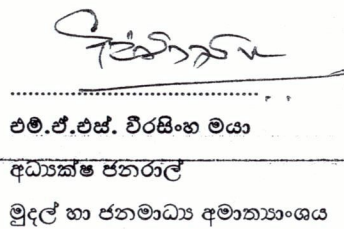 එම්.ඒ.එස්. වීරසිංහ මයා
අධ්‍යක්ෂ ජනරාල්
මුදල් හා ජනමාධ්‍ය අමාත්‍යාංශය